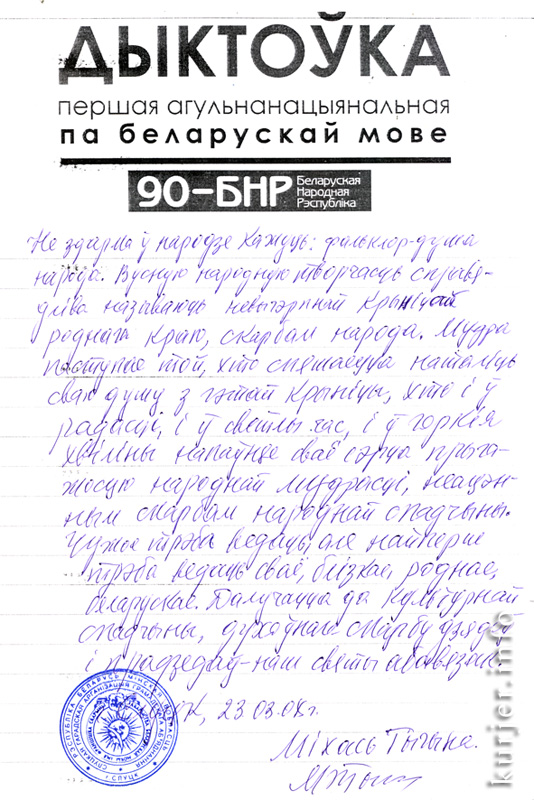 ДЫКТОЎКА
першая агульнанацыянальная
па беларускай мове
90–БНР Беларуская
Народная
Рэспубліка
Не здарма ў народзе кажуць: фальклор-душа
народа. Вусную народную творчасць справя-
дліва называюць невычэрпнай крыніцай
роднага краю, скарбам народа. Мудра
паступае той, хто спяшаецца наталіць
сваю душу з гэтай крыніцы, хто і ў
радасці, і ў светлы час, і ў горкія
хвіліны напаўняе сваё сэрца прыга-
жосцю народнай мудрасці, неацэн-
ным скарбам народнай спадчыны.
Чужое трэба ведаць, але найперш
трэба ведаць сваё, блізкае, роднае,
беларускае. Далучацца да культурнай
спадчыны, духоўнага скарбу дзядоў
і прадзедаў-наш святы абавязак.
23.03.08г.
Міхась Тычына.
г. СЛУЦК
kurjer.info